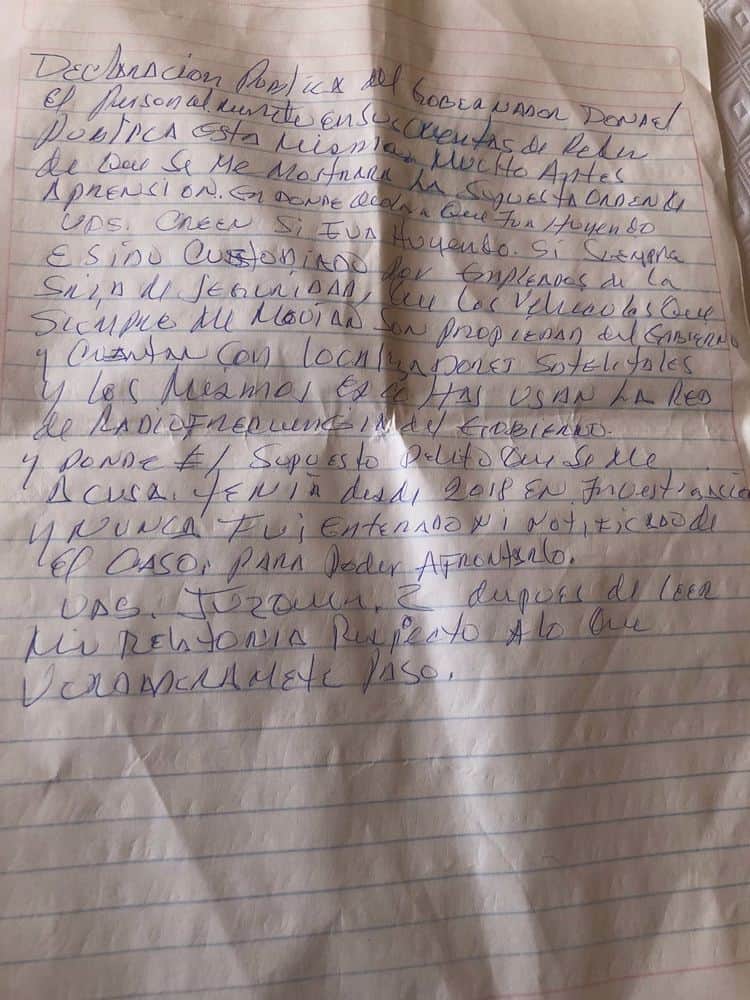 DECLARACION PUBLICA del GOBERNADOR DONDE
El Personalmente EN SUS CUENTAS de Redes
PUBLICA ESTA MISMA, MUCHO ANTES
de QUE SE ME MOSTRARA LA SUPUESTA ORDEN de
APRENSION. EN DONDE decia QUE IVA HUYENDO
UDS. CREEN SI IVA HUYENDO. SI SIEMPRE
E SIDO CUSTODIADO POR EMPLEADOS de la
SRIA de SEGURIDAD, QUE LOS VEHICULOS QUE
SIEMPRE ME MOVIAN SON PROPIEDAD del GOBIERNO
Y CUENTAN CON LOCALIZADORES SATELITALES
Y LOS MISMOS ESCOLTAS USAN LA RED
de RADIOFRECUENCIA del GOBIERNO.
Y DONDE El SUPUESTO DELITO QUE SE ME
ACUSA. TENIA desde 2018 EN INVESTIGACION
Y NUNCA FUI ENTERADO NI NOTIFICADO de
El CASO, PARA Poder AFRONTARLO.
UDS. JUZGUEN. despues de LEER
MI RELATORIA Respecto A lo QUE
VERDADERAMETE PASO.